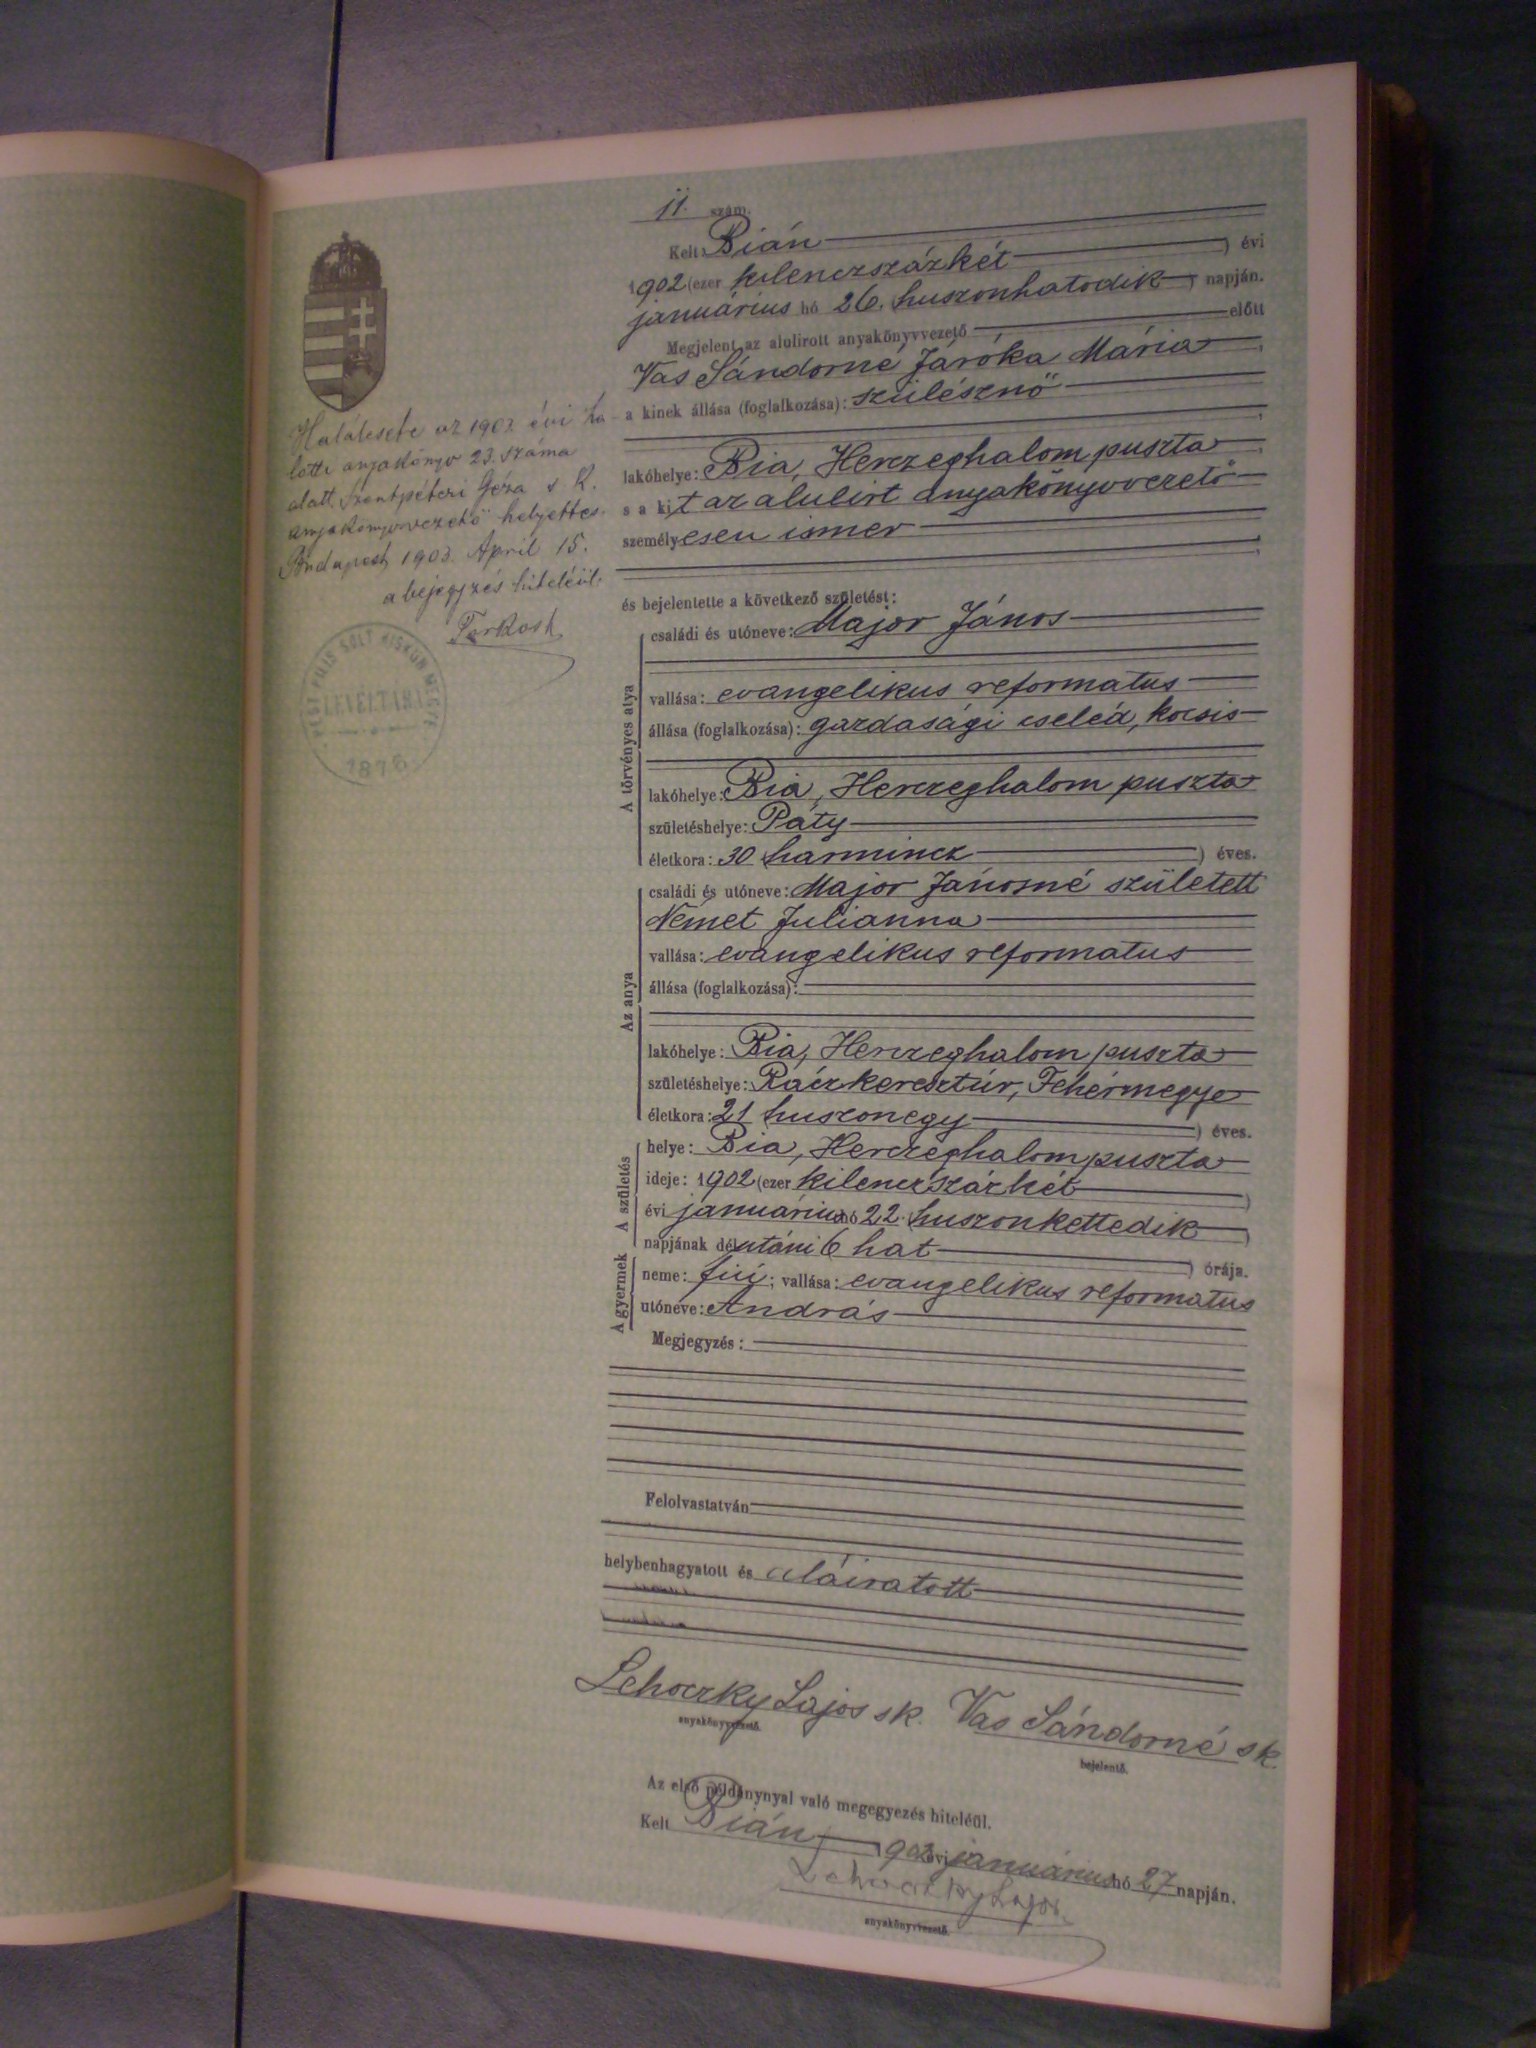 Halálesete az 1903. évi ha-
lotti anyakönyv 23. száma
alatt. Szentpéteri Géza s. k.
anyakönyvvezető helyettes.
Budapest, 1903. April 15.
a bejegyzés hiteléül:
LEVÉLTÁRA
1876
11. szám.
Kelt Bián
1902 (ezer kilenczszázkét ) évi
január​ius hó 26. (huszonhatodik ) napján.
Megjelent az alulirott anyakönyvvezető előtt
Vas Sándorné Járóka Mária
a kinek állása (foglalkozása): szülésznő
lakóhelye: Bia, Herczeghalom puszta
s a kit az alulirt anyakönyvvezető
személyesen ismer
és bejelentette a következő születést:
A törvényes atya
családi és utóneve: Major János
vallása: evangelikus reformatus
állása (foglalkozása): gazdasági cseléd, kocsis
lakóhelye: Bia, Herczeghalom puszta
születéshelye: Páty
életkora: 30 (harmincz ) éves.
Az anya
családi és utóneve: Major Jánosné született
Német Julianna
vallása: evangelikus reformatus
állása (foglalkozása):
lakóhelye: Bia, Herczeghalom puszta
születéshelye: Ráczkeresztúr, Fehérmegye
életkora: 21 (huszonegy ) éves.
A születés
helye: Bia, Herczeghalom puszta
ideje: 1902 (ezer kilenczszázkét )
évi január​ius hó 22. (huszonkettedik )
napjának délutáni 6 (hat ) órája.
A gyermek
neme: fiú; vallása: evangelikus reformatus
utóneve: András
Megjegyzés:
Felolvastatván
helybenhagyatott és aláiratott
Lehoczky Lajos sk. Vas Sándorné sk.
anyakönyvvezető. bejelentő.
Az első példánynyal való megegyezés hiteléül.
Kelt Bián, 1902 évi január​ius hó 27 napján.
Lehoczky Lajos
anyakönyvvezető.